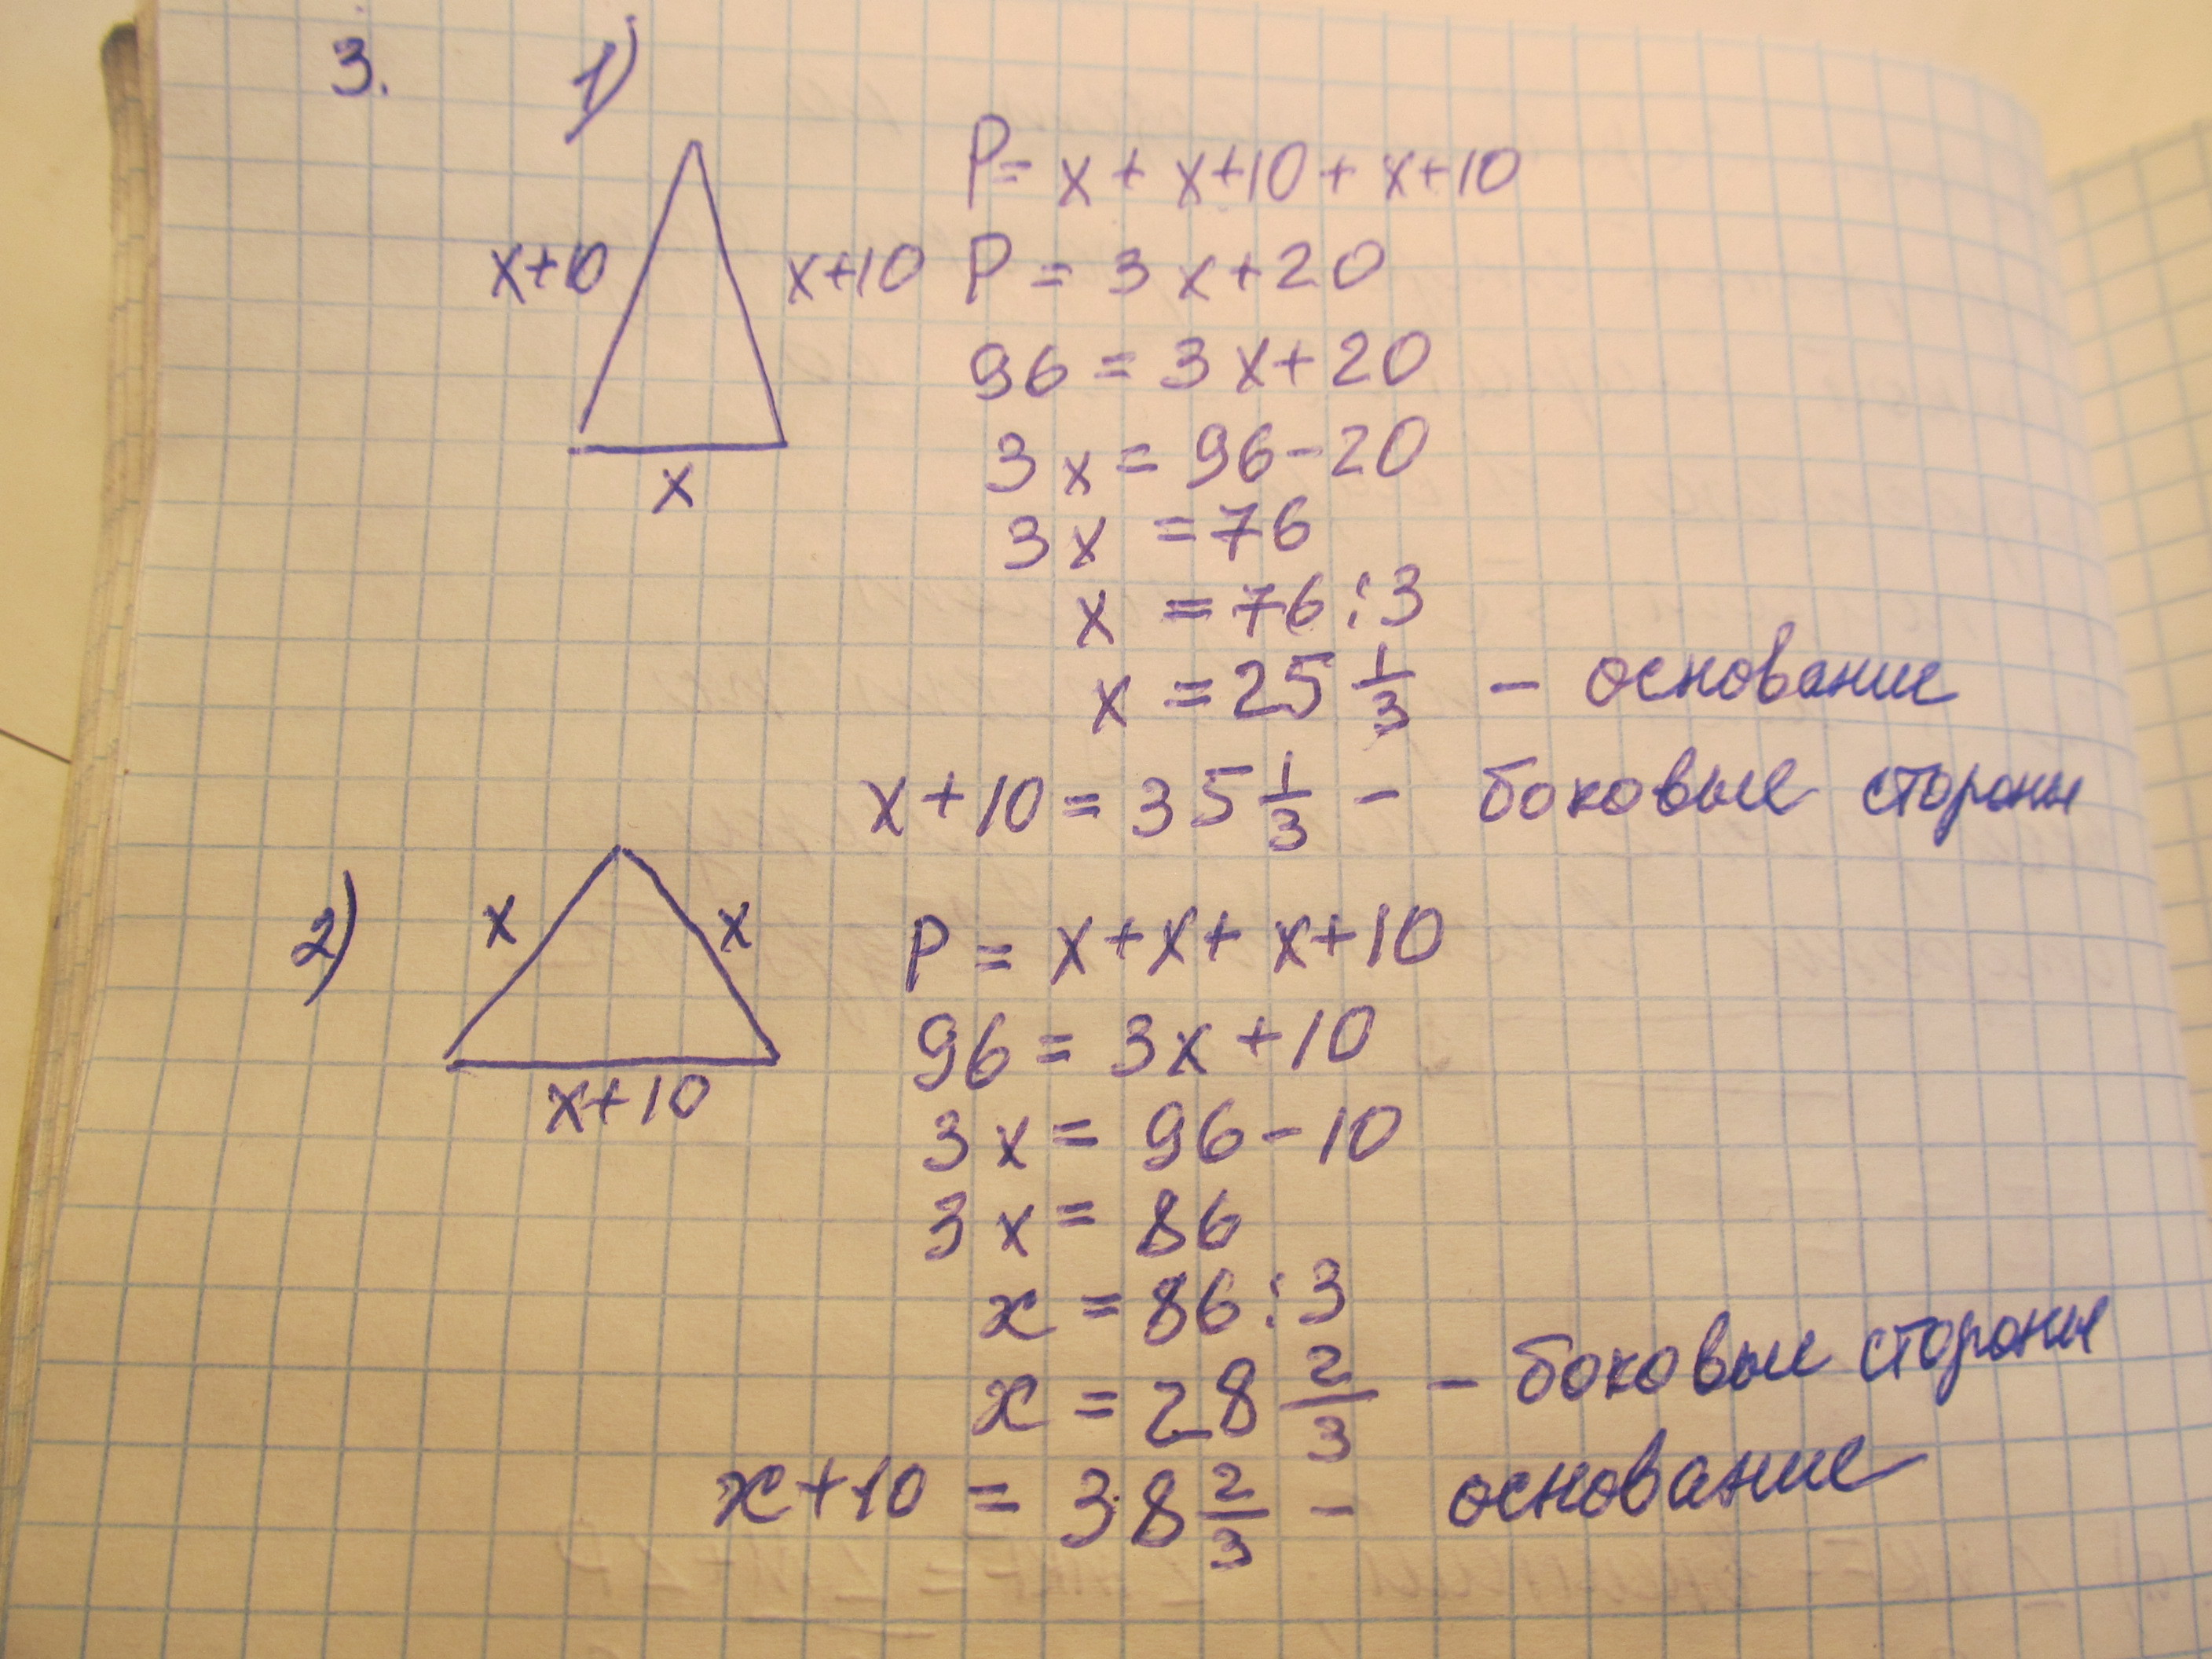 3. 1)
P = x + x+10 + x+10
x+10 x+10 P = 3x+20
96 = 3x+20
3x = 96-20
x
3x = 76
x = 76:3
x = 25 1/3 - основание
x+10 = 35 1/3 - боковые стороны
2) x x P = x+x+x+10
96 = 3x+10
x+10
3x = 96-10
3x = 86
x = 86:3
x = 28 2/3 - боковые стороны
x+10 = 38 2/3 - основание